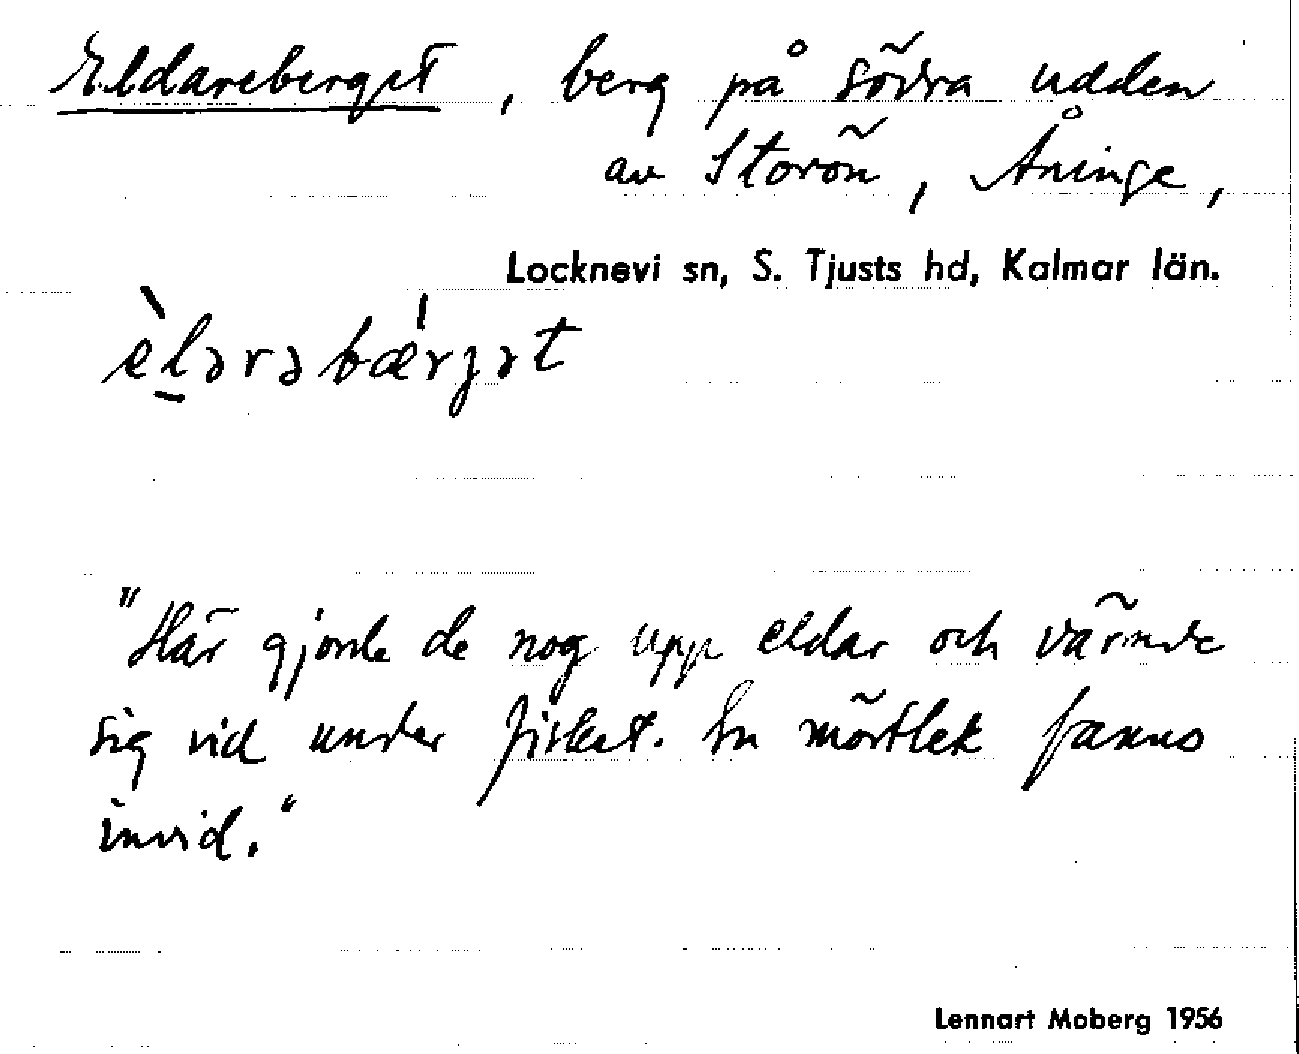 Eldareberget, berg på södra udden
av Storön, Åninge,
Locknevi sn, S. Tjusts hd, Kalmar län.
è̱lərəbǽrgət
"Här gjorde de nog upp eldar och värmde
sig vid under fisket. En mörtlek fanns
invid."
Lennart Moberg 1956